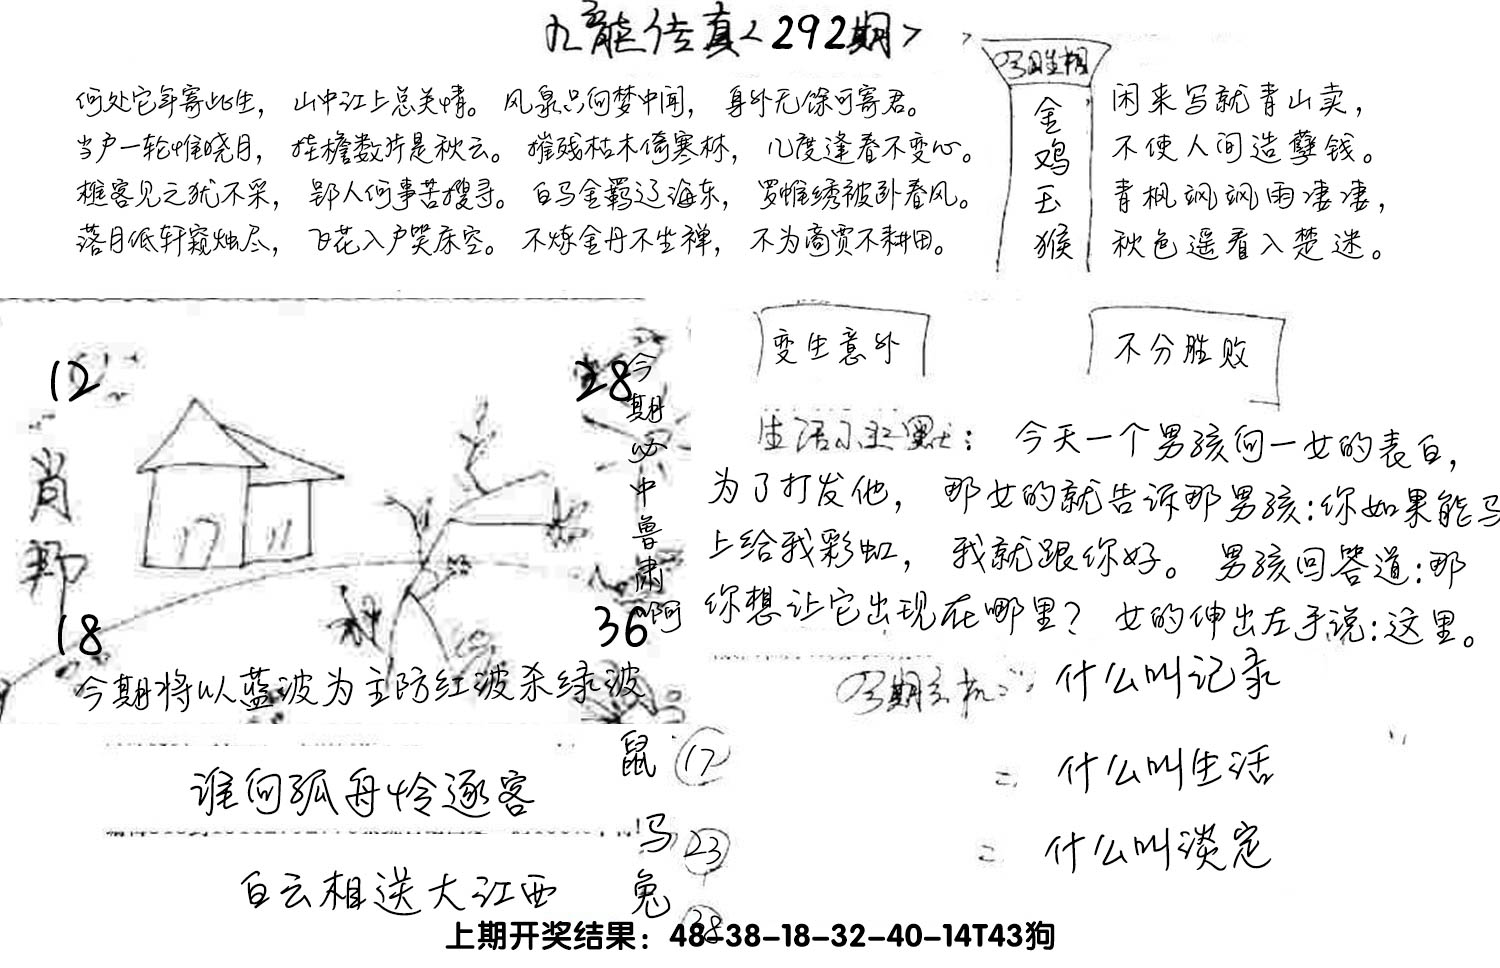 九龍传真<292期>
何处它年寄此生，山中江上总关情。风泉只向梦中闻，身外无馀可寄君。
当户一轮惟晓月，挂檐数片是秋云。摧残枯木倚寒林，几度逢春不变心。
樵客见之犹不采，郢人何事苦搜寻。白马金羁辽海东，罗帷绣被卧春风。
落月低轩窥烛尽，飞花入户笑床空。不炼金丹不坐禅，不为商贾不耕田。
金
鸡
玉
猴
闲来写就青山卖，
不使人间造孽钱。
青枫飒飒雨凄凄，
秋色遥看入楚迷。
12
28
肖
邦
18
36
今期必中鲁肃啊
今期将以蓝波为主防红波杀绿波
变生意外
不分胜败
今天一个男孩向一女的表白，
为了打发他，那女的就告诉那男孩:你如果能马
上给我彩虹，我就跟你好。男孩回答道:那
你想让它出现在哪里？女的伸出左手说:这里。
什么叫记录
什么叫生活
什么叫淡定
谁向孤舟怜逐客
白云相送大江西
鼠 17
马 23
兔 38
上期开奖结果：48-38-18-32-40-14T43狗